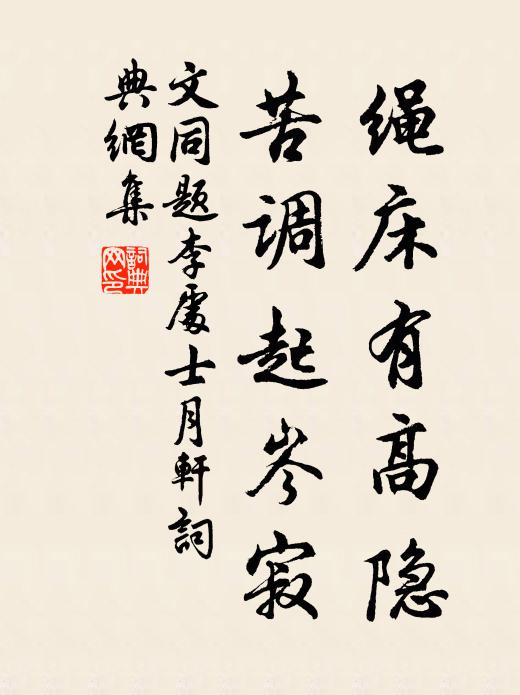 绳床有高隐
苦调起岑寂
文同题李處士月軒詞
典網集
詞典
网印